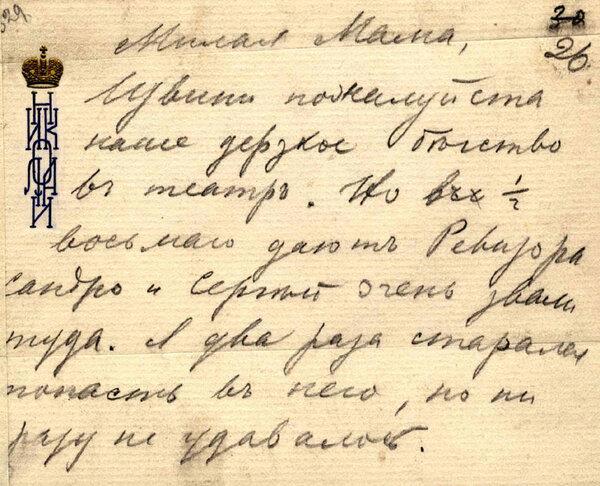 329
30
26
НИКОЛАЙ
Милая Мама,
Извини пожалуйста
наше дерзкое бѣгство
въ театръ. Но 1/2
восьмаго даютъ Ревизора
Сандро и Сергѣй очень звали
туда. Я два раза старался
попасть въ него, но ни
разу не удавалось.